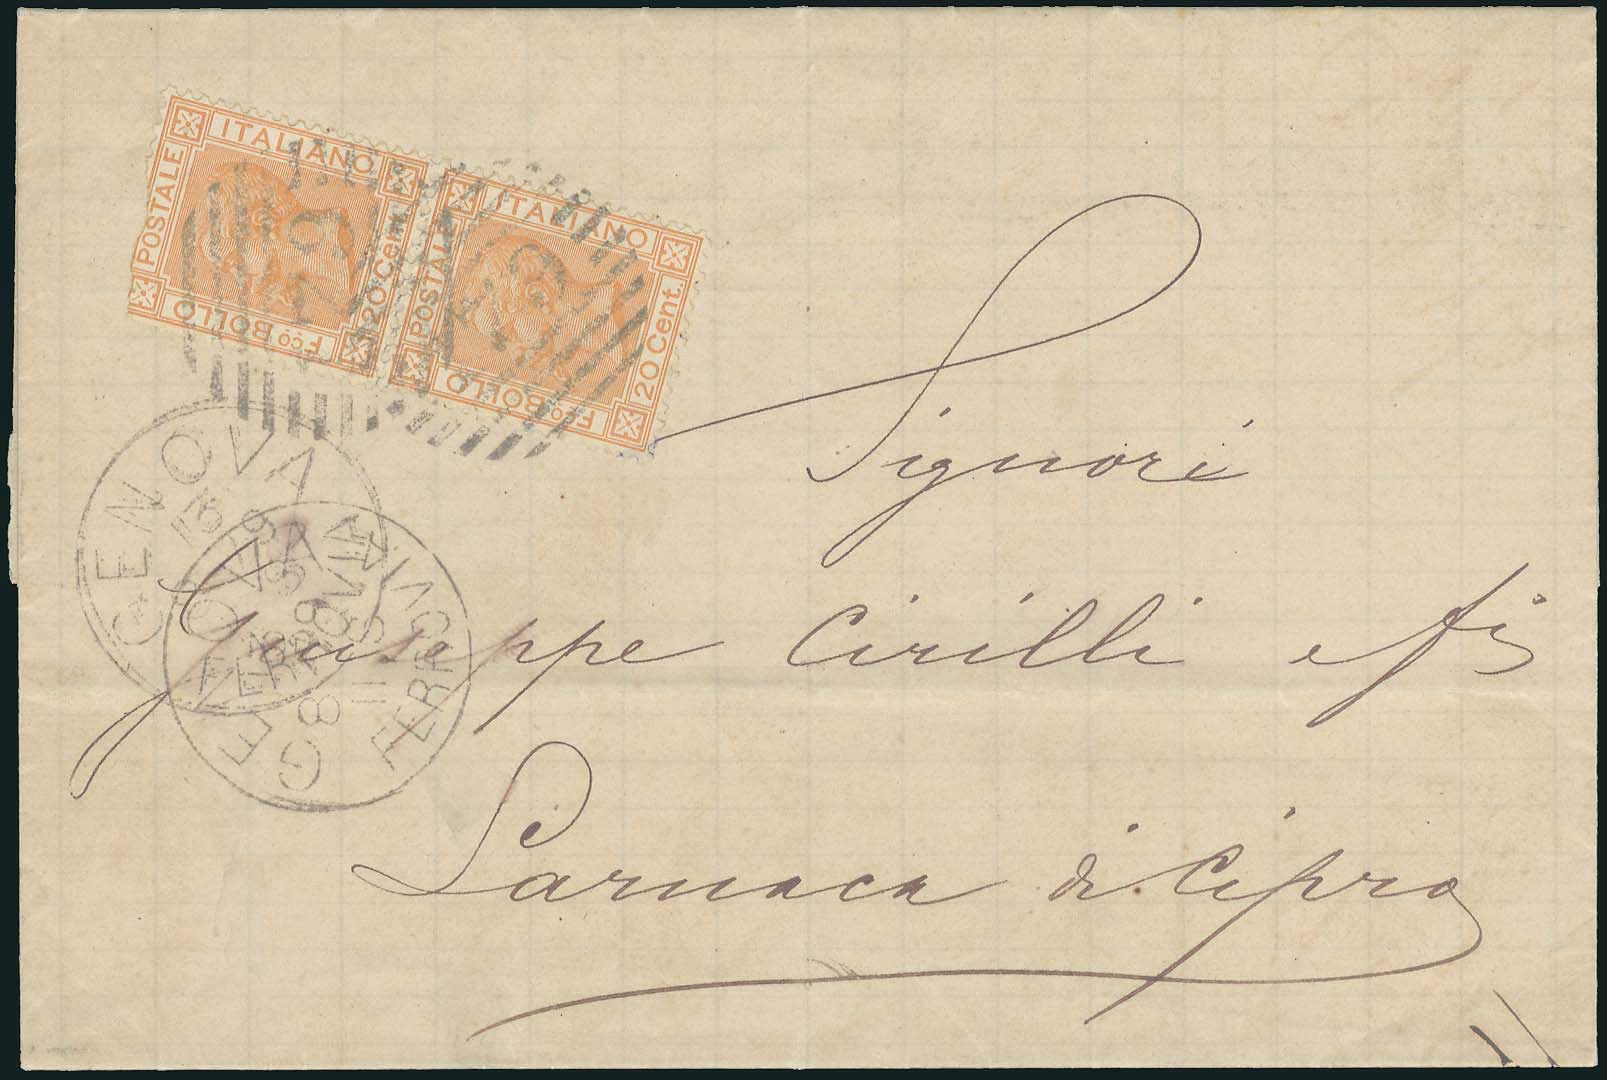 ITALIANO
POSTALE
20 Cent.
Fco BOLLO
ITALIANO
POSTALE
20 Cent.
Fco BOLLO
GENOVA
FERROVIA
GENOVA
FERROVIA
Signori
Giuseppe Cirilli e fi
Larnaca di Cipro